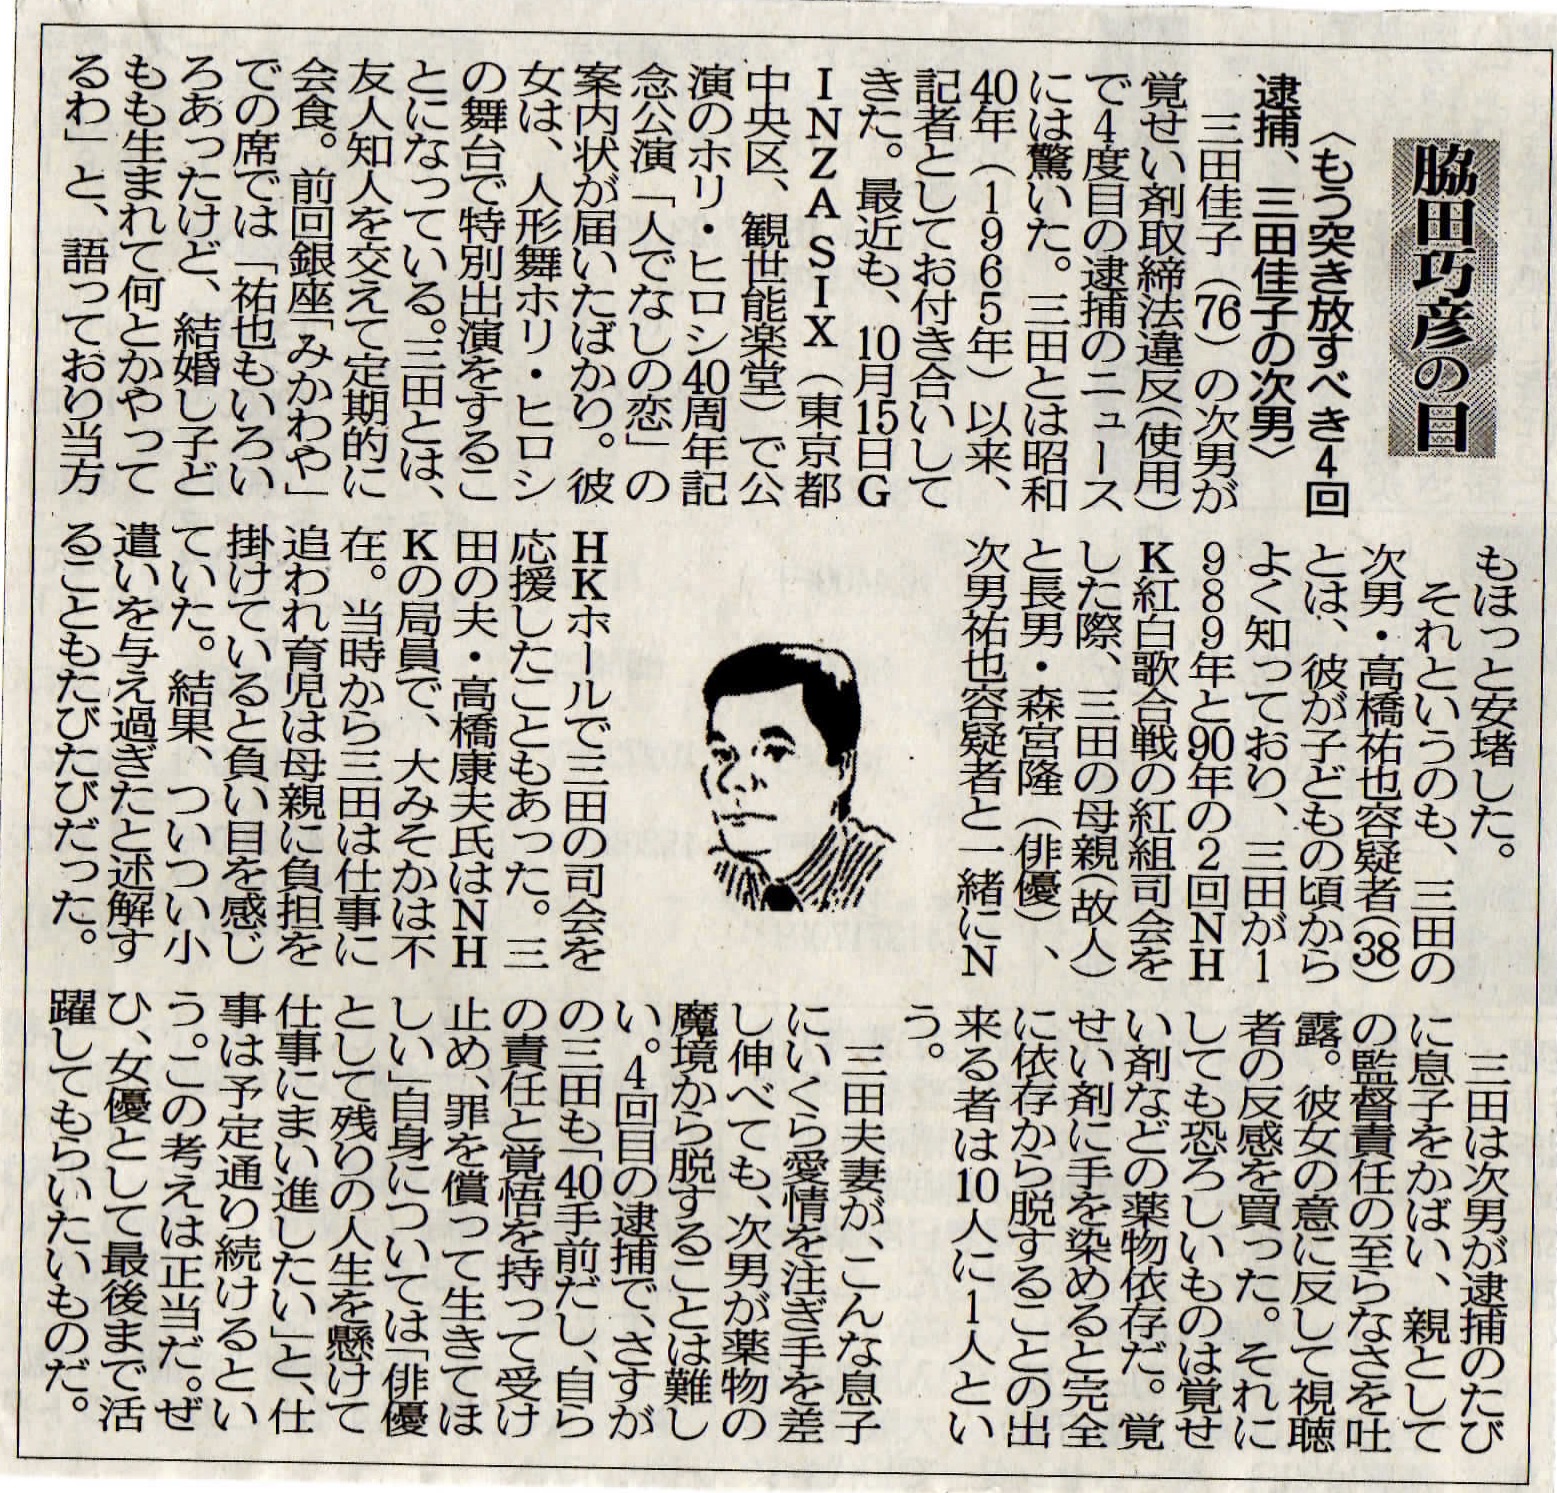 脇田巧彦の目
〈もう突き放すべき4回
逮捕、三田佳子の次男〉
三田佳子（76）の次男が
覚せい剤取締法違反（使用）
で4度目の逮捕のニュース
には驚いた。三田とは昭和
40年（1965年）以来、
記者としてお付き合いして
きた。最近も、10月15日G
INZA SIX（東京都
中央区、観世能楽堂）で公
演のホリ・ヒロシ40周年記
念公演「人でなしの恋」の
案内状が届いたばかり。彼
女は、人形舞ホリ・ヒロシ
の舞台で特別出演をするこ
とになっている。三田とは、
友人知人を交えて定期的に
会食。前回銀座「みかわや」
での席では「祐也もいろい
ろあったけど、結婚し子ど
もも生まれて何とかやって
るわ」と、語っており当方
もほっと安堵した。
それというのも、三田の
次男・高橋祐也容疑者（38）
とは、彼が子どもの頃から
よく知っており、三田が1
989年と90年の2回NH
K紅白歌合戦の紅組司会を
した際、三田の母親（故人）
と長男・森宮隆（俳優）、
次男祐也容疑者と一緒にN
HKホールで三田の司会を
応援したこともあった。三
田の夫・高橋康夫氏はNH
Kの局員で、大みそかは不
在。当時から三田は仕事に
追われ育児は母親に負担を
掛けていると負い目を感じ
ていた。結果、ついつい小
遣いを与え過ぎたと述解す
ることもたびたびだった。
三田は次男が逮捕のたび
に息子をかばい、親として
の監督責任の至らなさを吐
露。彼女の意に反して視聴
者の反感を買った。それに
しても恐ろしいものは覚せ
い剤などの薬物依存だ。覚
せい剤に手を染めると完全
に依存から脱することの出
来る者は10人に1人とい
う。
三田夫妻が、こんな息子
にいくら愛情を注ぎ手を差
し伸べても、次男が薬物の
魔境から脱することは難し
い。4回目の逮捕で、さすが
の三田も「40手前だし、自ら
の責任と覚悟を持って受け
止め、罪を償って生きてほ
しい」「自身については「俳優
として残りの人生を懸けて
仕事にまい進したい」と、仕
事は予定通り続けるとい
う。この考えは正当だ。ぜ
ひ、女優として最後まで活
躍してもらいたいものだ。